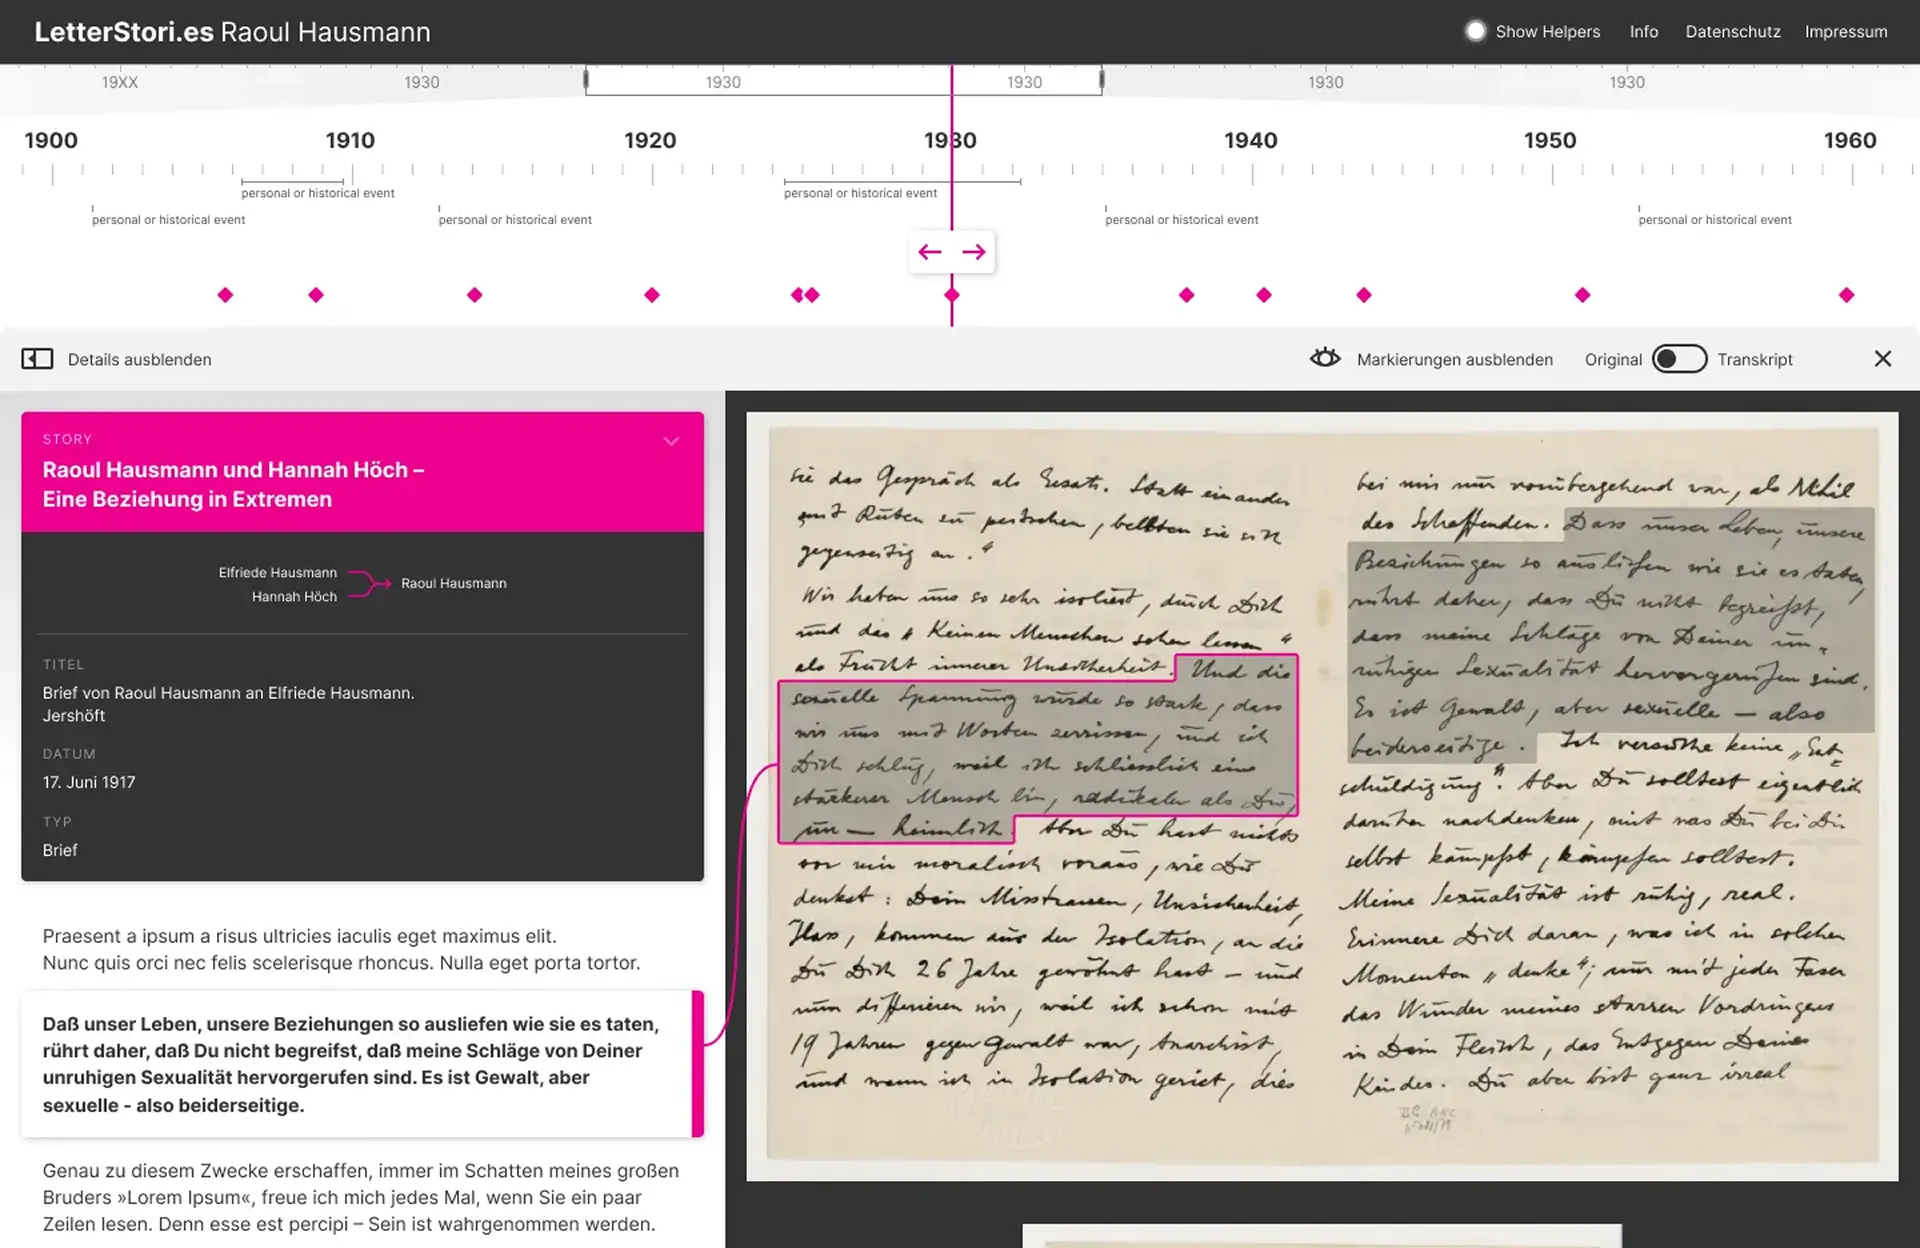 LetterStori.es Raoul Hausmann
Show Helpers Info Datenschutz Impressum
19XX 1930 1930 1930 1930 1930
1900 1910 1920 1930 1940 1950 1960
personal or historical event personal or historical event
personal or historical event personal or historical event personal or historical event personal or historical event
Details ausblenden
Markierungen ausblenden Original Transkript
STORY
Raoul Hausmann und Hannah Höch –
Eine Beziehung in Extremen
Elfriede Hausmann
Hannah Höch
Raoul Hausmann
TITEL
Brief von Raoul Hausmann an Elfriede Hausmann.
Jershöft
DATUM
17. Juni 1917
TYP
Brief
Praesent a ipsum a risus ultricies iaculis eget maximus elit.
Nunc quis orci nec felis scelerisque rhoncus. Nulla eget porta tortor.
Daß unser Leben, unsere Beziehungen so ausliefen wie sie es taten,
rührt daher, daß Du nicht begreifst, daß meine Schläge von Deiner
unruhigen Sexualität hervorgerufen sind. Es ist Gewalt, aber
sexuelle - also beiderseitige.
Genau zu diesem Zwecke erschaffen, immer im Schatten meines großen
Bruders »Lorem Ipsum«, freue ich mich jedes Mal, wenn Sie ein paar
Zeilen lesen. Denn esse est percipi – Sein ist wahrgenommen werden.
sie das Gespräch als Ersatz. Statt einander
mit Ruten zu peitschen, bellten sie sich
gegenseitig an."
Wir haben uns so sehr isoliert, durch Dich
und das "Keinen Menschen sehen lassen"
als Frucht innerer Unsicherheit. Und die
sexuelle Spannung wurde so stark, dass
wir uns mit Worten zerrissen, und ich
Dich schlug, weil ich schliesslich eine
stärkerer Mensch bin, radikaler als Du,
un — heimlich. Aber Du hast nichts
vor mir moralisch voraus, wie Du
denkst: Dein Misstrauen, Unsicherheit,
Hass, kommen aus der Isolation, an die
Du Dich 26 Jahre gewöhnt hast — und
nun differieren wir, weil ich schon mit
19 Jahren gegen Gewalt war, Anarchist,
und wenn ich in Isolation geriet, dies
bei mir nur vorübergehend war, als Mittel
des Schaffenden. Dass unser Leben, unsere
Beziehungen so ausliefen wie sie es taten,
rührt daher, dass Du nicht begreifst,
dass meine Schläge von Deiner un-
ruhigen Sexualität hervorgerufen sind.
Es ist Gewalt, aber sexuelle — also
beiderseitige. Ich versuche keine „Ent=
schuldigung". Aber Du solltest eigentlich
darüber nachdenken, mit was Du bei Dir
selbst kämpfst, kämpfen solltest.
Meine Sexualität ist ruhig, real.
Erinnere Dich daran, was ich in solchen
Momenten „denke"; nur mit jeder Faser
das Wunder meines starren Vordringens
in Dein Fleisch, das Entgegen Deines
Kindes. Du aber bist ganz irreal